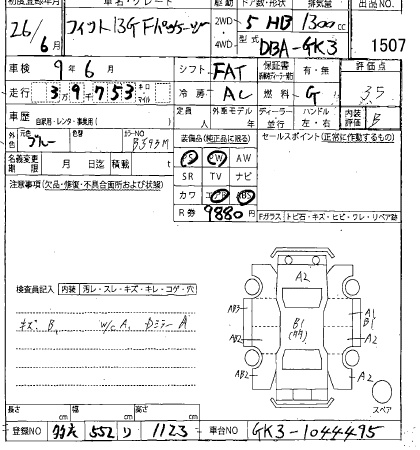 初度登録年月 車名・グレード 駆動 ドア数・形状 排気量 出品NO
26/6月 フィット 13G Fパッケージ 2WD 4WD 5 HB 1300cc
型式 DBA-GK3 1507
車検 9年6月 シフト FAT 保証書 有・無 評価点
走行 3万9千753 キロ マイル 冷房 AC 燃料 G 3.5
車歴 自家用・レンタ・事業用( ) 定員 人 外車モデル 年 ディーラー 並行 ハンドル 左・右 内装評価 B
外色 元色 ブルー 色替 カラーNO B593M 装備品(純正品に限る) セールスポイント(正常に作動するもの)
名義変更期限 月 日迄 積載 t PS PW AW
注意事項(欠品・修復・不具合箇所および状態) SR TV ナビ
カワ エアB ABS
R券 9880円 Fガラス トビ石・キズ・ヒビ・ワレ・リペア跡
検査員記入 内装 汚レ・スレ・キズ・キレ・コゲ・穴
キズ B, W/C A, Dミラー A
A2
AB3 A1
B1 B1
AB2 A2
AB2 A2
スペア
長さ cm 幅 cm 高さ cm
登録NO 552 り 1123 車台NO GK3-1044495